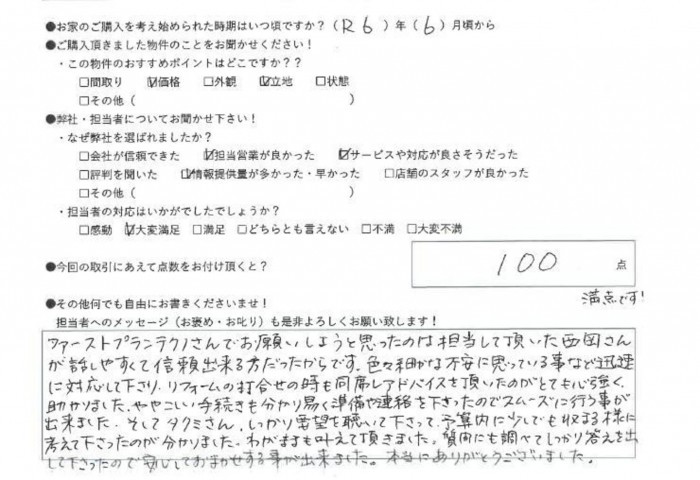 ●お家のご購入を考え始められた時期はいつ頃ですか？（R6）年（6）月頃から
●ご購入頂きました物件のことをお聞かせください！
・この物件のおすすめポイントはどこですか？？
□間取り ☑価格 □外観 ☑立地 □状態
□その他（ ）
●弊社・担当者についてお聞かせ下さい！
・なぜ弊社を選ばれましたか？
□会社が信頼できた ☑担当営業が良かった ☑サービスや対応が良さそうだった
□評判を聞いた ☑情報提供量が多かった・早かった □店舗のスタッフが良かった
□その他（ ）
・担当者の対応はいかがでしたでしょうか？
□感動 ☑大変満足 □満足 □どちらとも言えない □不満 □大変不満
●今回の取引にあえて点数をお付け頂くと？ 100 点
満点です!
●その他何でも自由にお書きくださいませ！
担当者へのメッセージ（お褒め・お叱り）も是非よろしくお願い致します！
ファーストプランテクノさんでお願いしようと思ったのは担当して頂いた西岡さん
が話しやすくて信頼出来る方だったからです。色々細かな不安に思っている事など迅速
に対応して下さり、リフォームの打合せの時も同席しアドバイスを頂いたのがとても心強く、
助かりました。ややこしい手続きも分かり易く準備や連絡を下さったのでスムーズに行う事が
出来ました。そしてタクミさん、しっかり要望を聴いて下さって、予算内に少しでも収まる様に
考えて下さったのが分かりました。わがままも叶えて頂きました。質問にも調べてしっかり答えを出
して下さったので安心しておまかせする事が出来ました。本当にありがとうございました。